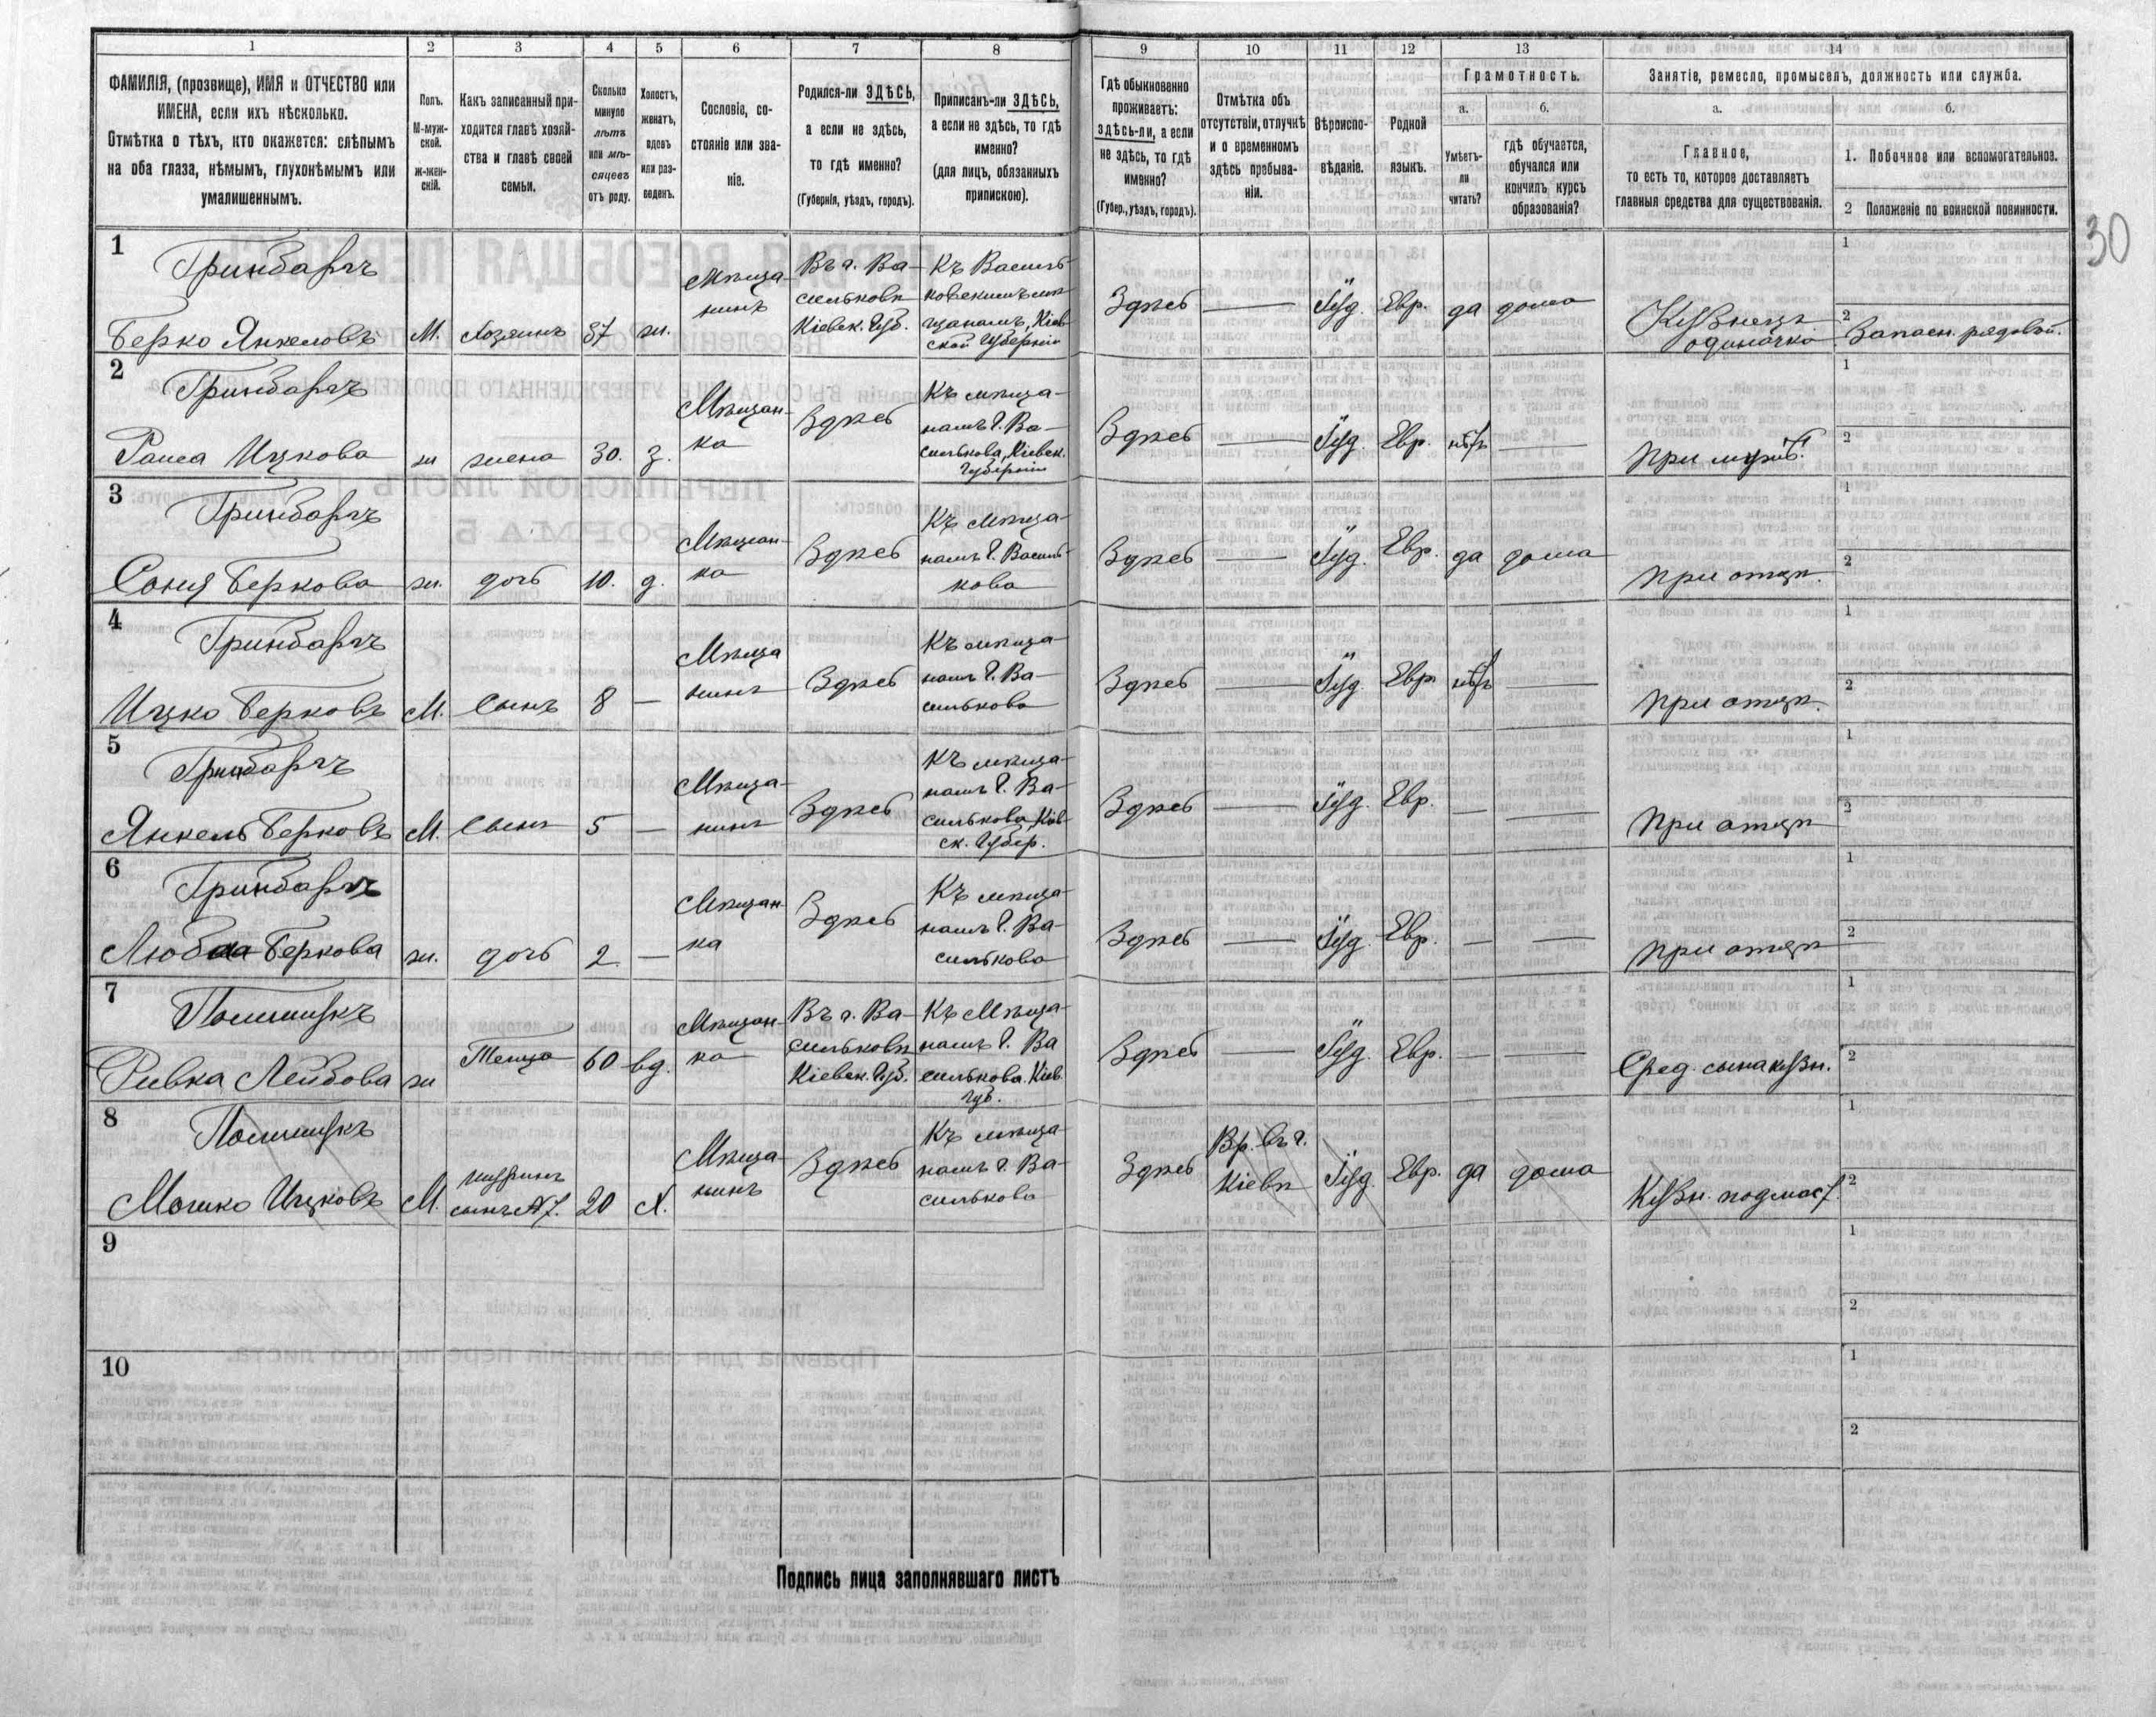 1 2 3 4 5 6 7 8 9 10 11 12 13 14
ФАМИЛІЯ, (прозвище), ИМЯ и ОТЧЕСТВО или
ИМЕНА, если ихъ нѣсколько.
Отмѣтка о тѣхъ, кто окажется: слѣпымъ
на оба глаза, нѣмымъ, глухонѣмымъ или
умалишеннымъ.
Полъ.
М-муж-
ской.
ж-жен-
скій.
Какъ записанный при-
ходится главѣ хозяй-
ства и главѣ своей
семьи.
Сколько
минуло
лѣтъ
или мѣ-
сяцевъ
отъ роду.
Холостъ,
женатъ,
вдовъ
или раз-
веденъ.
Сословіе, со-
стояніе или зва-
ніе.
Родился-ли ЗДѢСЬ,
а если не здѣсь,
то гдѣ именно?
(Губернія, уѣздъ, городъ).
Приписанъ-ли ЗДѢСЬ,
а если не здѣсь, то гдѣ
именно?
(для лицъ, обязанныхъ
припискою).
Гдѣ обыкновенно
проживаетъ:
здѣсь-ли, а если
не здѣсь, то гдѣ
именно?
(Губер., уѣздъ, городъ).
Отмѣтка объ
отсутствіи, отлучкѣ
и о временномъ
здѣсь пребыва-
ніи.
Вѣроиспо-
вѣданіе.
Родной
языкъ.
Грамотность.
а.
Умѣетъ-
ли
читать?
б.
гдѣ обучается,
обучался или
кончилъ курсъ
образованія?
Занятіе, ремесло, промыселъ, должность или служба.
а.
Главное,
то есть то, которое доставляетъ
главныя средства для существованія.
б.
1. Побочное или вспомогательное.
2 Положеніе по воинской повинности.
30
1
Гринбаргъ
Берко Янкеловъ
М.
Хозяинъ
37
ж.
Мѣща-
нинъ
Въ г. Ва-
сильковѣ
Кіевск. Губ.
Къ Василь-
ковскимъ мѣ-
щанамъ, Кіев-
ской Губерніи
Здѣсь
—
Іуд.
Евр.
да
дома
Кузнецъ
одиночка
1
2
Запасн. рядовой.
2
Гринбаргъ
Раиса Ицкова
ж
жена
30.
з.
Мѣщан-
ка
Здѣсь
Къ мѣща-
намъ г. Ва-
силькова, Кіевск.
Губерніи
Здѣсь
—
Іуд.
Евр.
нѣтъ
—
При мужѣ.
1
2
3
Гринбаргъ
Соня Беркова
ж.
дочь
10.
д.
Мѣщан-
ка
Здѣсь
Къ мѣща-
намъ г. Василь-
кова
Здѣсь
—
Іуд.
Евр.
да
дома
При отцѣ.
1
2
4
Гринбаргъ
Ицко Берковъ
М.
Сынъ
8
—
Мѣща
нинъ
Здѣсь
Къ мѣща-
намъ г. Ва-
силькова
Здѣсь
—
Іуд.
Евр.
нѣтъ
—
При отцѣ.
1
2
5
Гринбаргъ
Янкель Берковъ
М.
Сынъ
5
—
Мѣща-
нинъ
Здѣсь
Къ мѣща-
намъ г. Ва-
силькова, Кіев-
ск. Губер.
Здѣсь
—
Іуд.
Евр.
—
—
При отцѣ
1
2
6
Гринбаргъ
Беркова
ж.
дочь
2
—
Мѣщан-
ка
Здѣсь
Къ мѣща-
намъ г. Ва-
силькова
Здѣсь
—
Іуд.
Евр.
—
—
При отцѣ
1
2
7
Ривка Лейбова
ж
Теща
60
вд.
Мѣщан-
ка
Въ г. Ва-
сильковѣ
Кіевск. Губ.
Къ Мѣща-
намъ г. Ва
силькова. Кіев.
Губ.
Здѣсь
—
Іуд.
Евр.
—
—
Сред. сына кузн.
1
2
8
Мошко Ицковъ
М.
шуринъ
сынъ № 7.
20
Х.
Мѣща-
нинъ
Здѣсь
Къ мѣща-
намъ г. Ва-
силькова
Здѣсь
Вр. въ г.
Кіевѣ
Іуд.
Евр.
да
дома
Кузн. подмаст.
1
2
9
1
2
10
1
2
Подпись лица заполнявшаго листъ